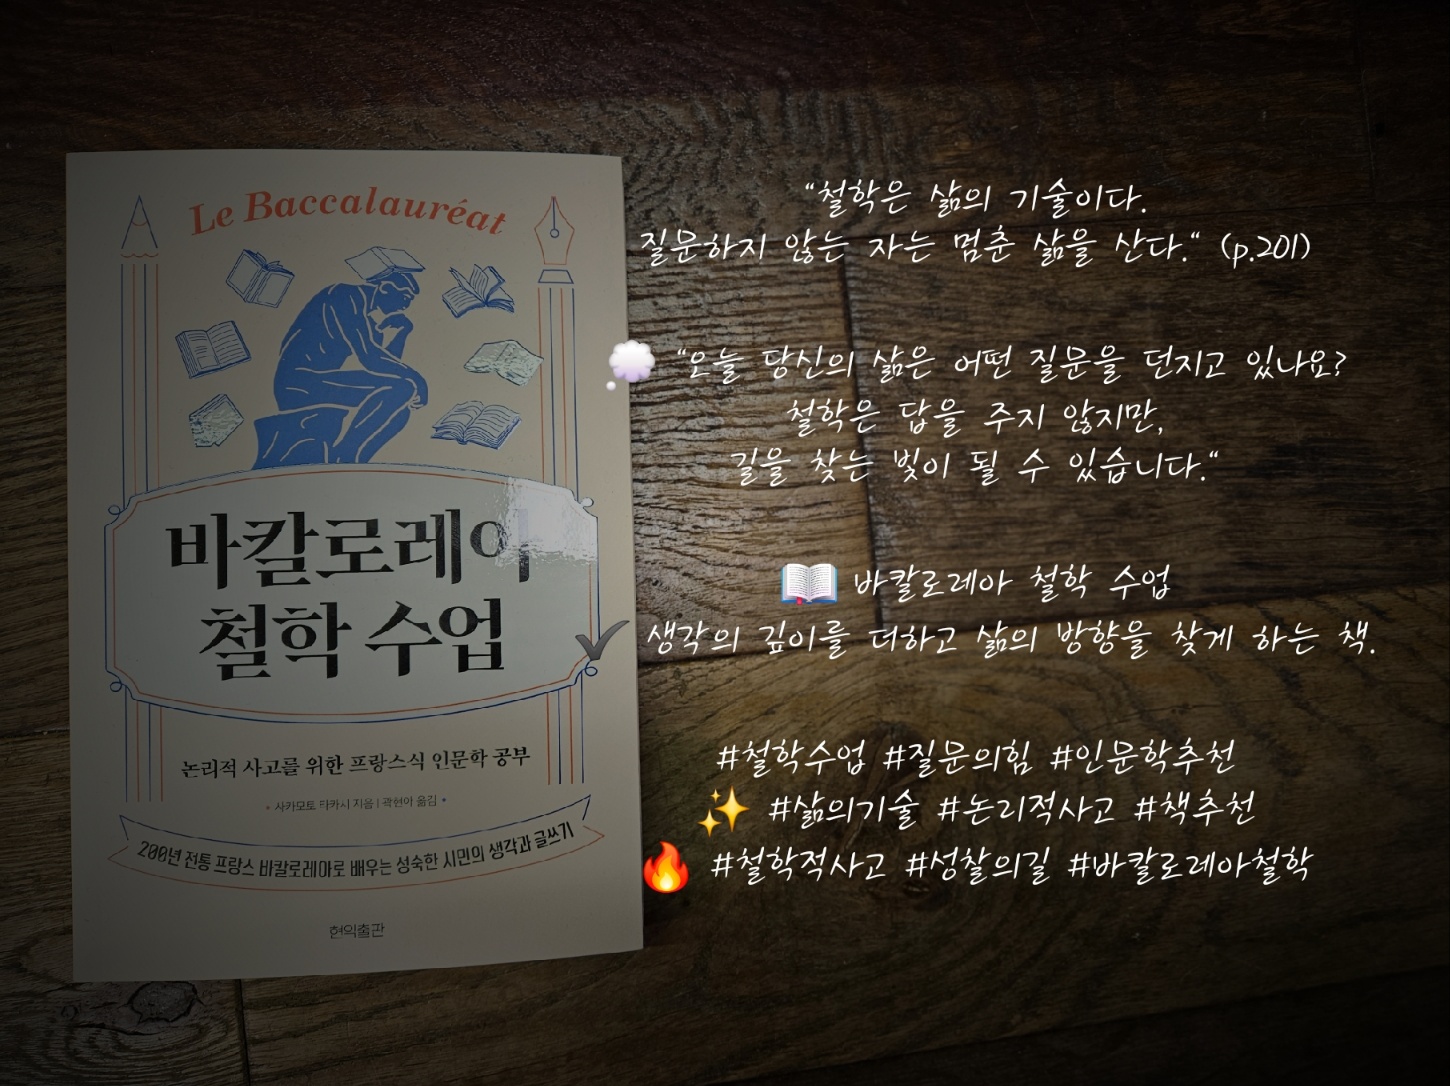 Le Baccalauréat
바칼로레아
철학 수업
논리적 사고를 위한 프랑스식 인문학 공부
사카모토 타카시 지음 | 곽현아 옮김
200년 전통 프랑스 바칼로레아로 배우는 성숙한 시민의 생각과 글쓰기
현익출판
"철학은 삶의 기술이다.
질문하지 않는 자는 멈춘 삶을 산다." (p.201)
💭 "오늘 당신의 삶은 어떤 질문을 던지고 있나요?
철학은 답을 주지 않지만,
길을 찾는 빛이 될 수 있습니다."
📖 바칼로레아 철학 수업
✔ 생각의 깊이를 더하고 삶의 방향을 찾게 하는 책.
#철학수업 #질문의힘 #인문학추천
✨ #삶의기술 #논리적사고 #책추천
🔥 #철학적사고 #성찰의길 #바칼로레아철학